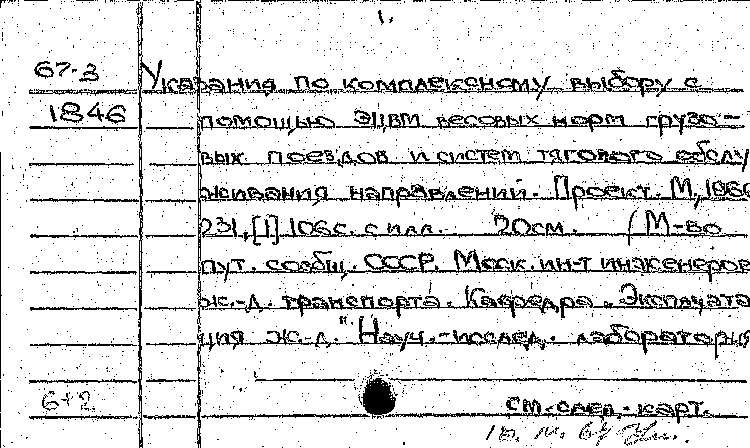 1.
67-3 Указания по комплексному выбору с
1846 помощью ЭЦВМ весовых норм грузо-
вых поездов и систем тягового обслу
живания направлений. Проект. М., 196
231, [1] 106с. с илл. 20см. (М-во
пут. сообщ. СССР. Моск. ин-т инженеров
ж.-д. транспорта. Кафедра „Эксплуата
ция ж.-д." Науч.-исслед. лаборатория
6+2 см. след. карт.